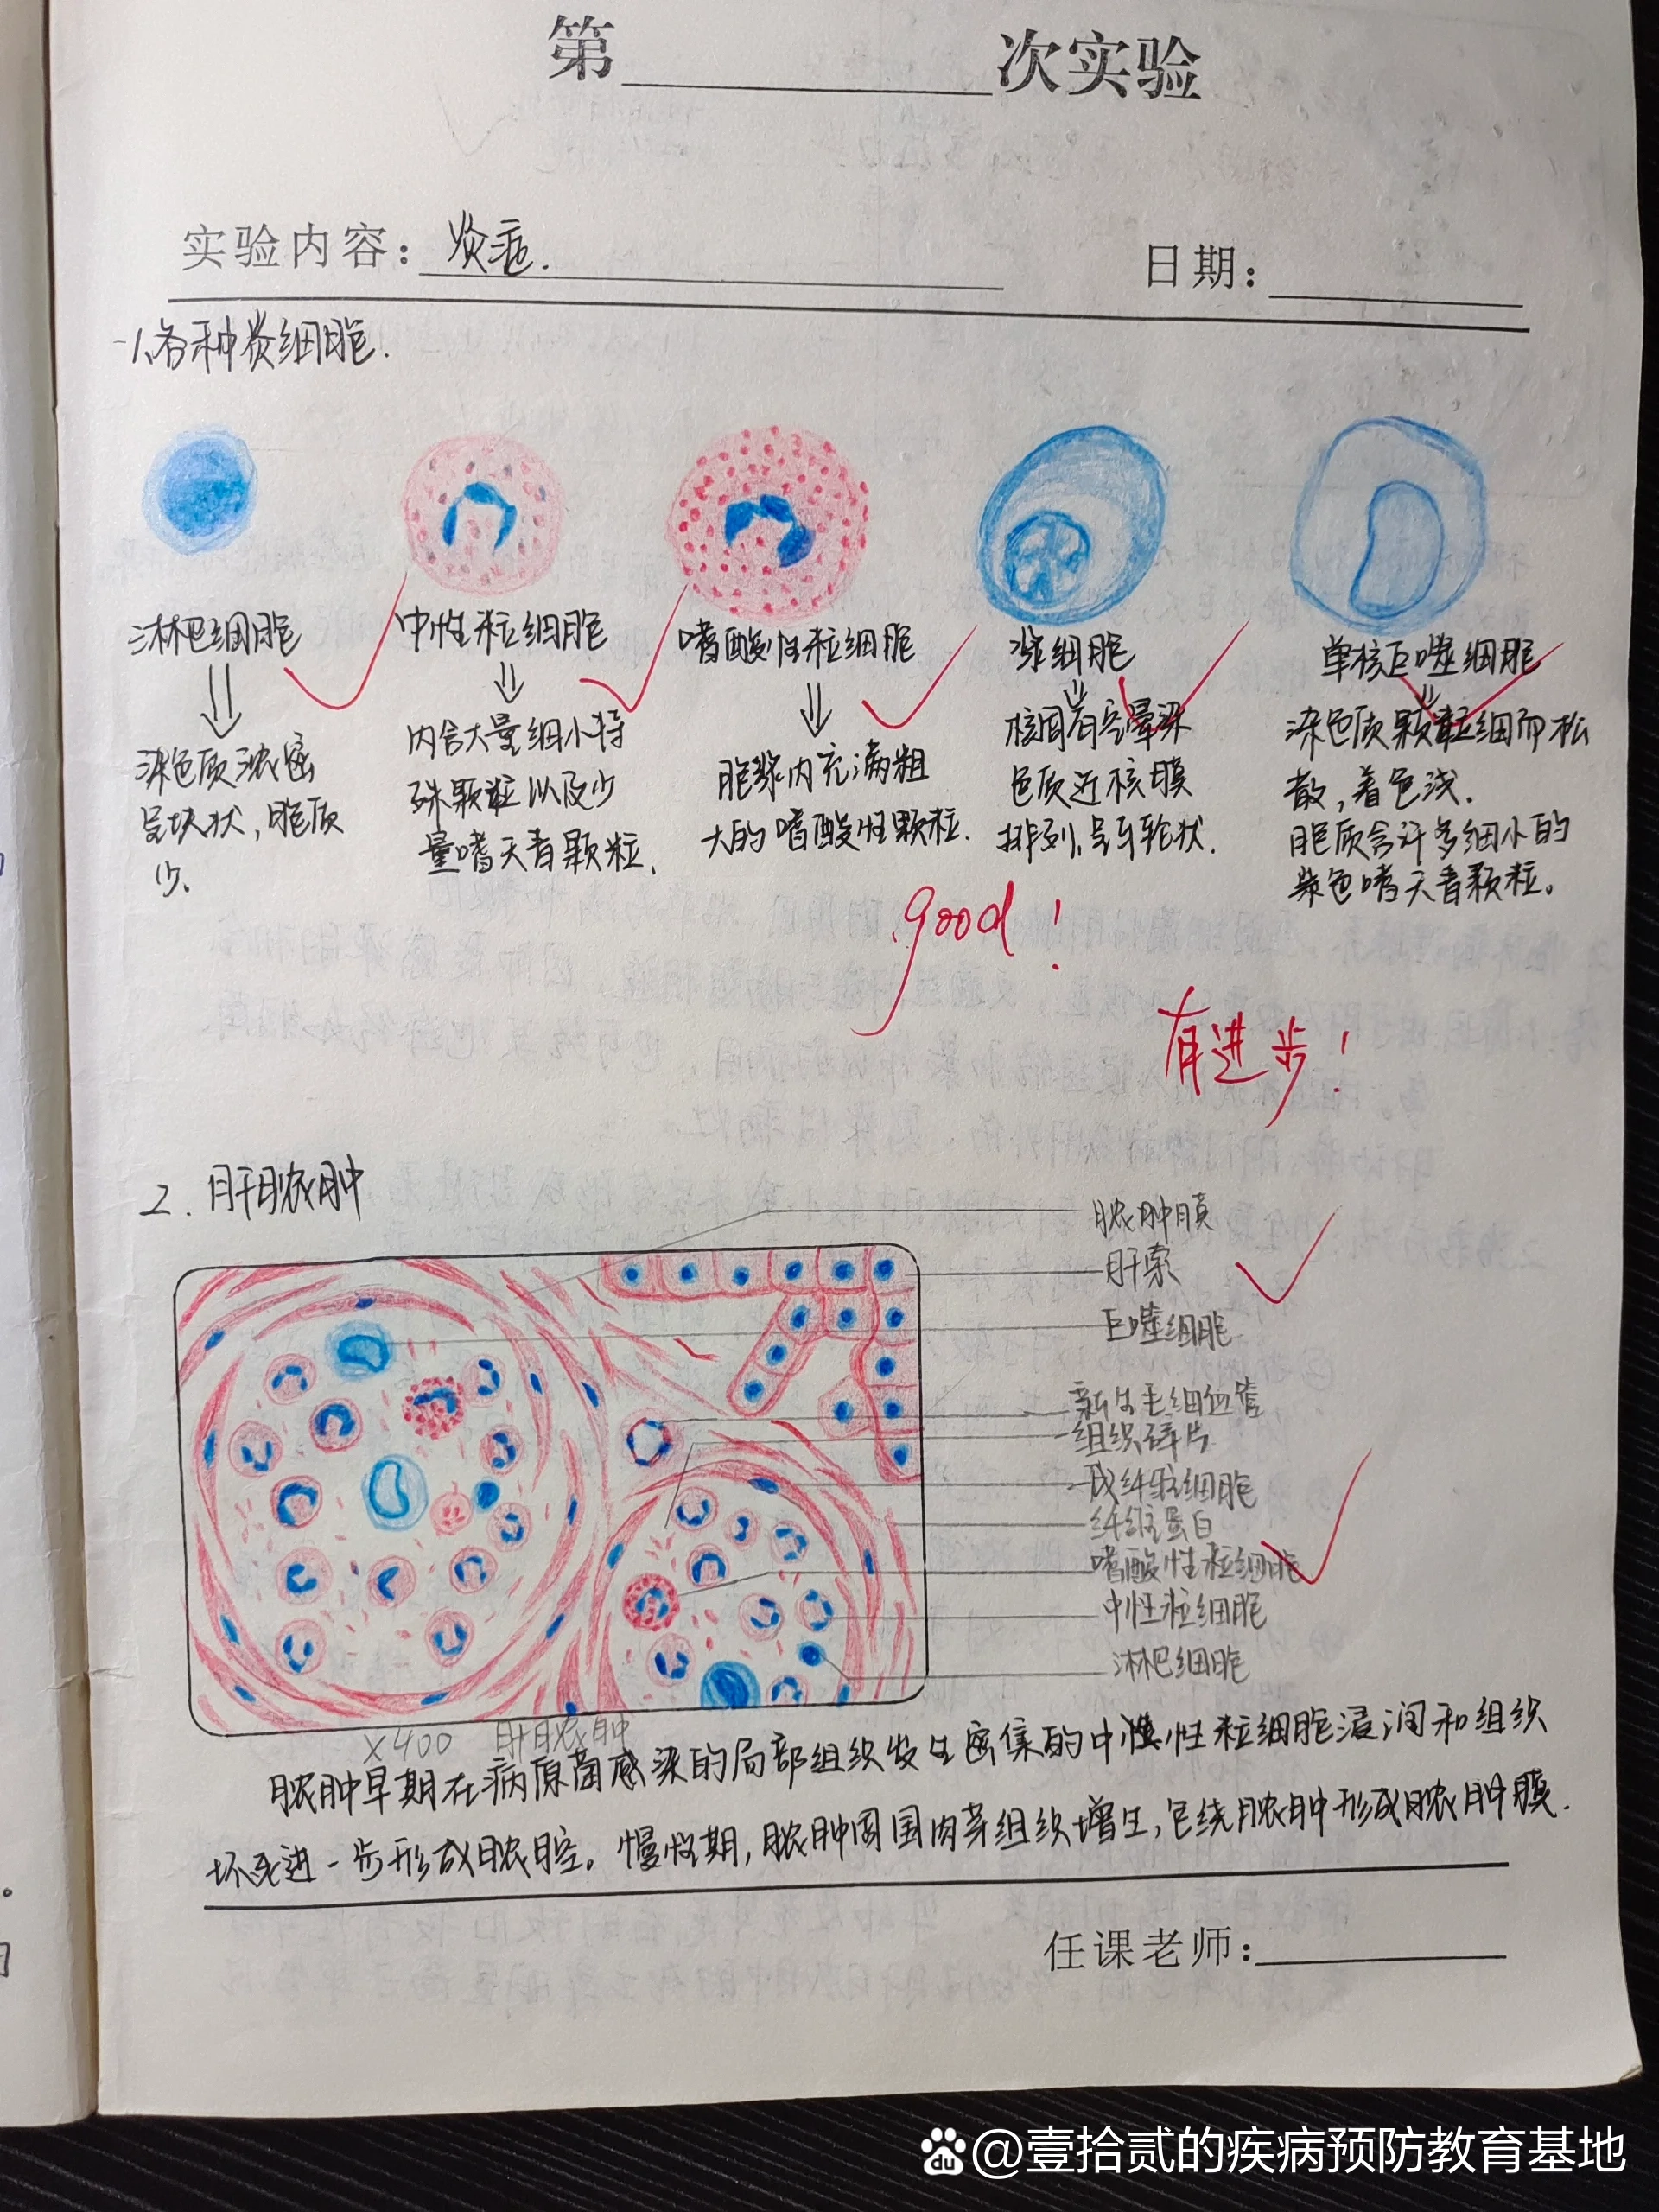 第 次实验
实验内容：炎症.
日期：
1、各种炎细胞.
淋巴细胞
染色质浓密
呈块状，胞质
少.
中性粒细胞
内含大量细小特
殊颗粒以及少
量嗜天青颗粒.
嗜酸性粒细胞
胞浆内充满粗
大的嗜酸性颗粒.
浆细胞
核周有空晕染
色质近核膜
排列，呈车轮状.
单核巨噬细胞
染色质颗粒细而松
散，着色浅.
胞质含许多细小的
紫色嗜天青颗粒。
good！
有进步！
2. 肝脓肿
脓肿膜
肝索
巨噬细胞
新生毛细血管
组织碎片
成纤维细胞
纤维蛋白
嗜酸性粒细胞
中性粒细胞
淋巴细胞
×400 肝脓肿
脓肿早期在病原菌感染的局部组织发生密集的中性粒细胞浸润和组织
坏死进一步形成脓腔。慢性期，脓肿周围肉芽组织增生，包绕脓肿形成脓肿膜.
任课老师：
du @壹拾贰的疾病预防教育基地